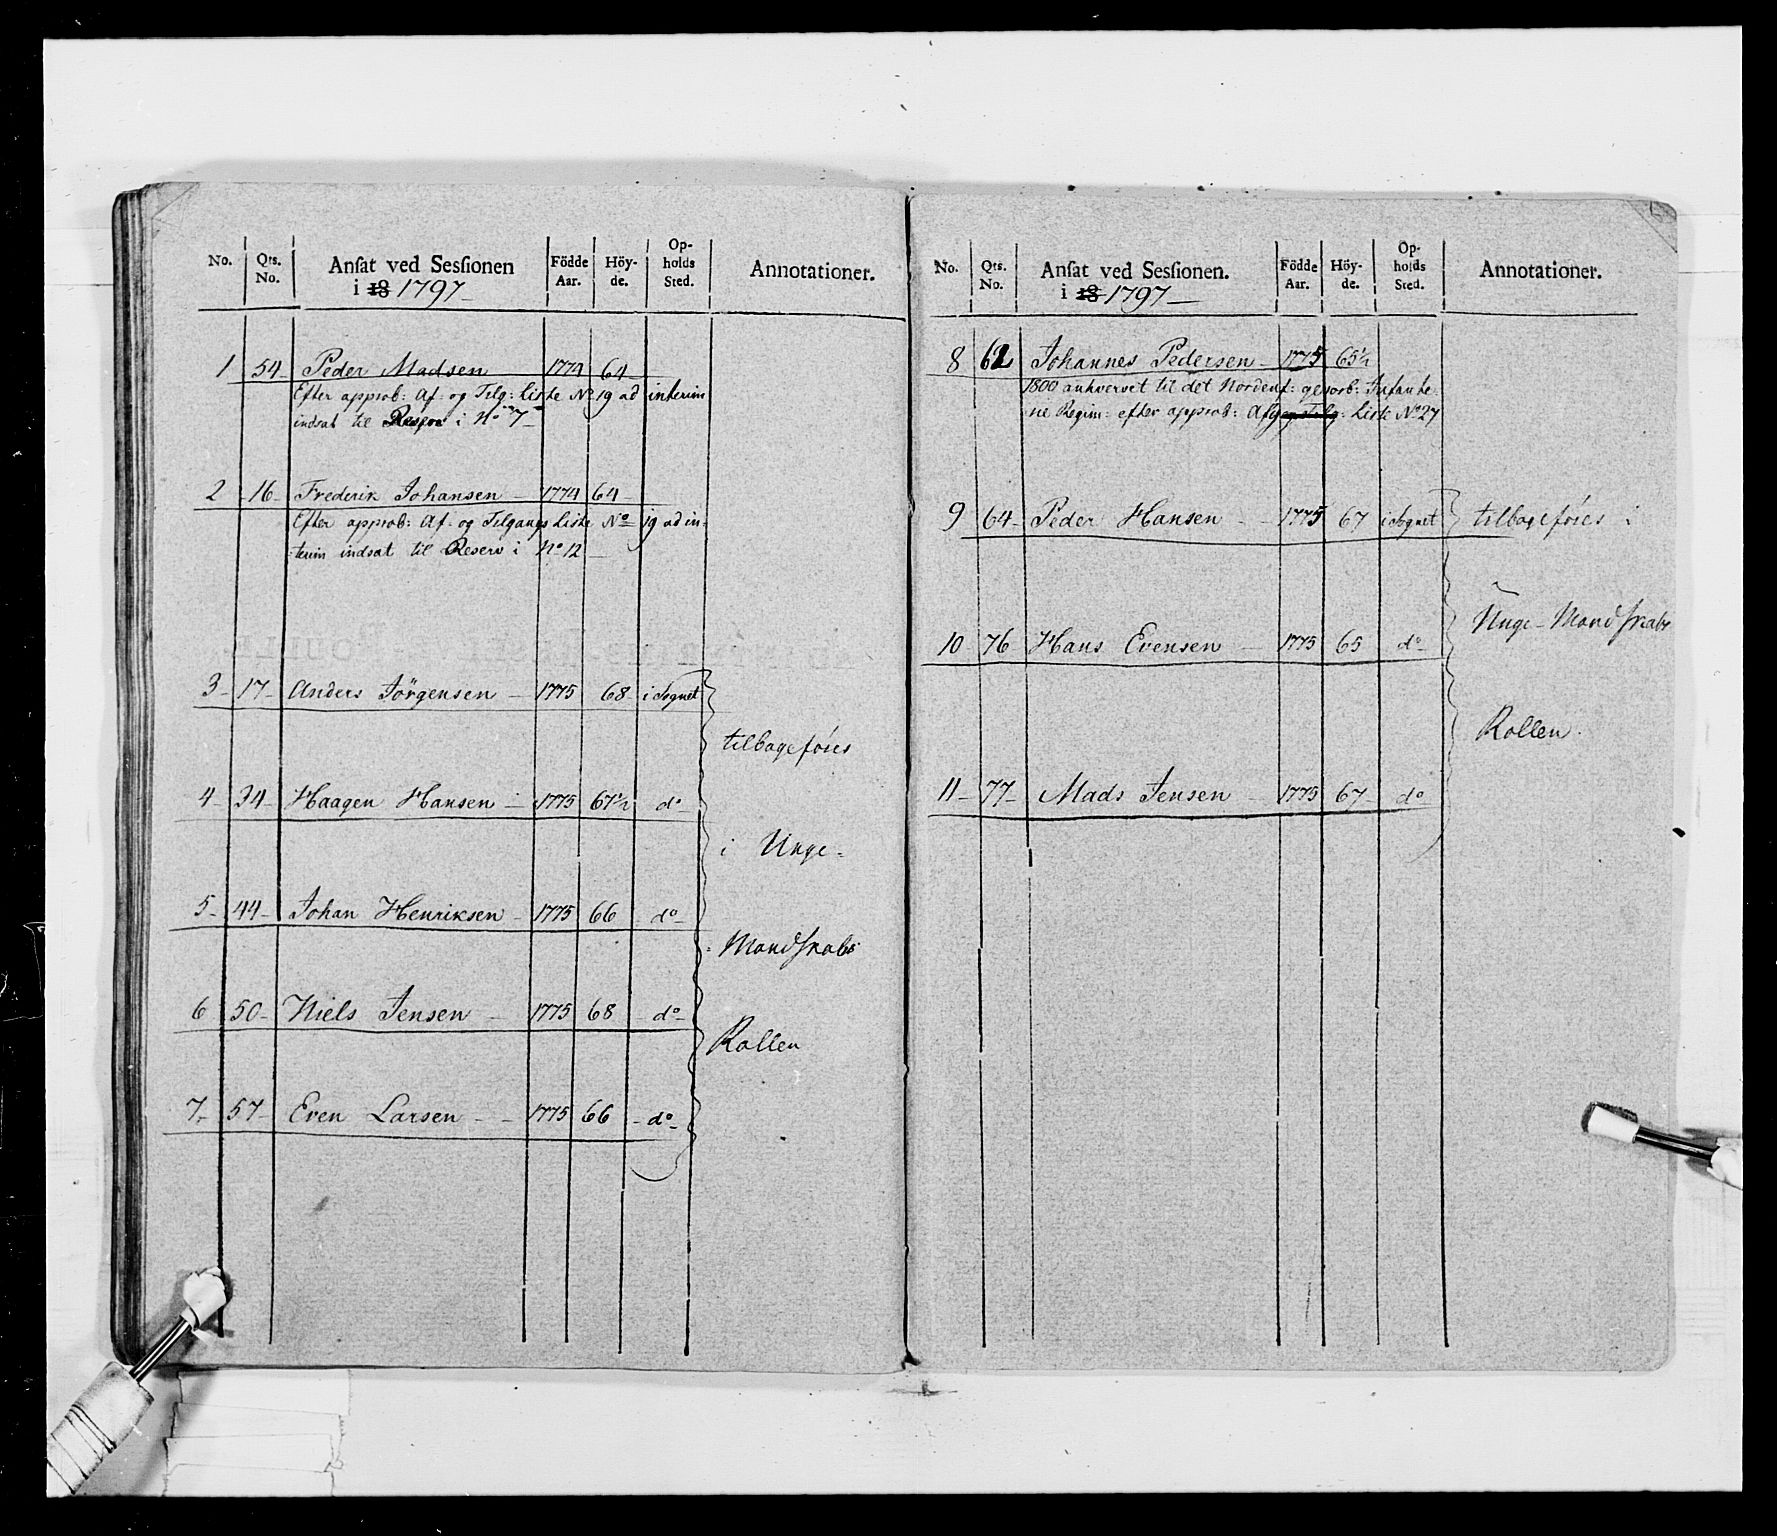 No. Qts. No. Ansat ved Sessionen i 18 1797 Födde Aar. Höyde. Opholds Sted. Annotationer.
1 54 Peder Madsen 1774 64
Efter approb: Af- og Tilg: Liste No 19 ad interim
indsat til Reserv i No 7
2 16 Frederik Johansen 1774 64
Efter approb: Af- og Tilgangs Liste No 19 ad in-
terim indsat til Reserv i No 12
3 17 Anders Jörgensen 1775 68 i Sognet
tilbageföres
4 34 Haagen Hansen 1775 67½ do
i Unge-
5 44 Johan Henriksen 1775 66 do
Mandskabs
6 50 Niels Jensen 1775 68 do
Rollen
7 57 Even Larsen 1775 66 do
No. Qts. No. Ansat ved Sessionen. i 18 1797 Födde Aar. Höyde. Opholds Sted. Annotationer.
8 62 Johannes Pedersen 1775 65½
1800 anhvervet til det Nordenf: geworb: Infante
ne Regim: efter approb: Afg og Tilg: Liste No 27
9 64 Peder Hansen 1775 67 i Sognet tilbageföres i
Unge-Mandskabs
10 76 Hans Evensen 1775 65 do
Rollen.
11 77 Mads Jensen 1775 67 do